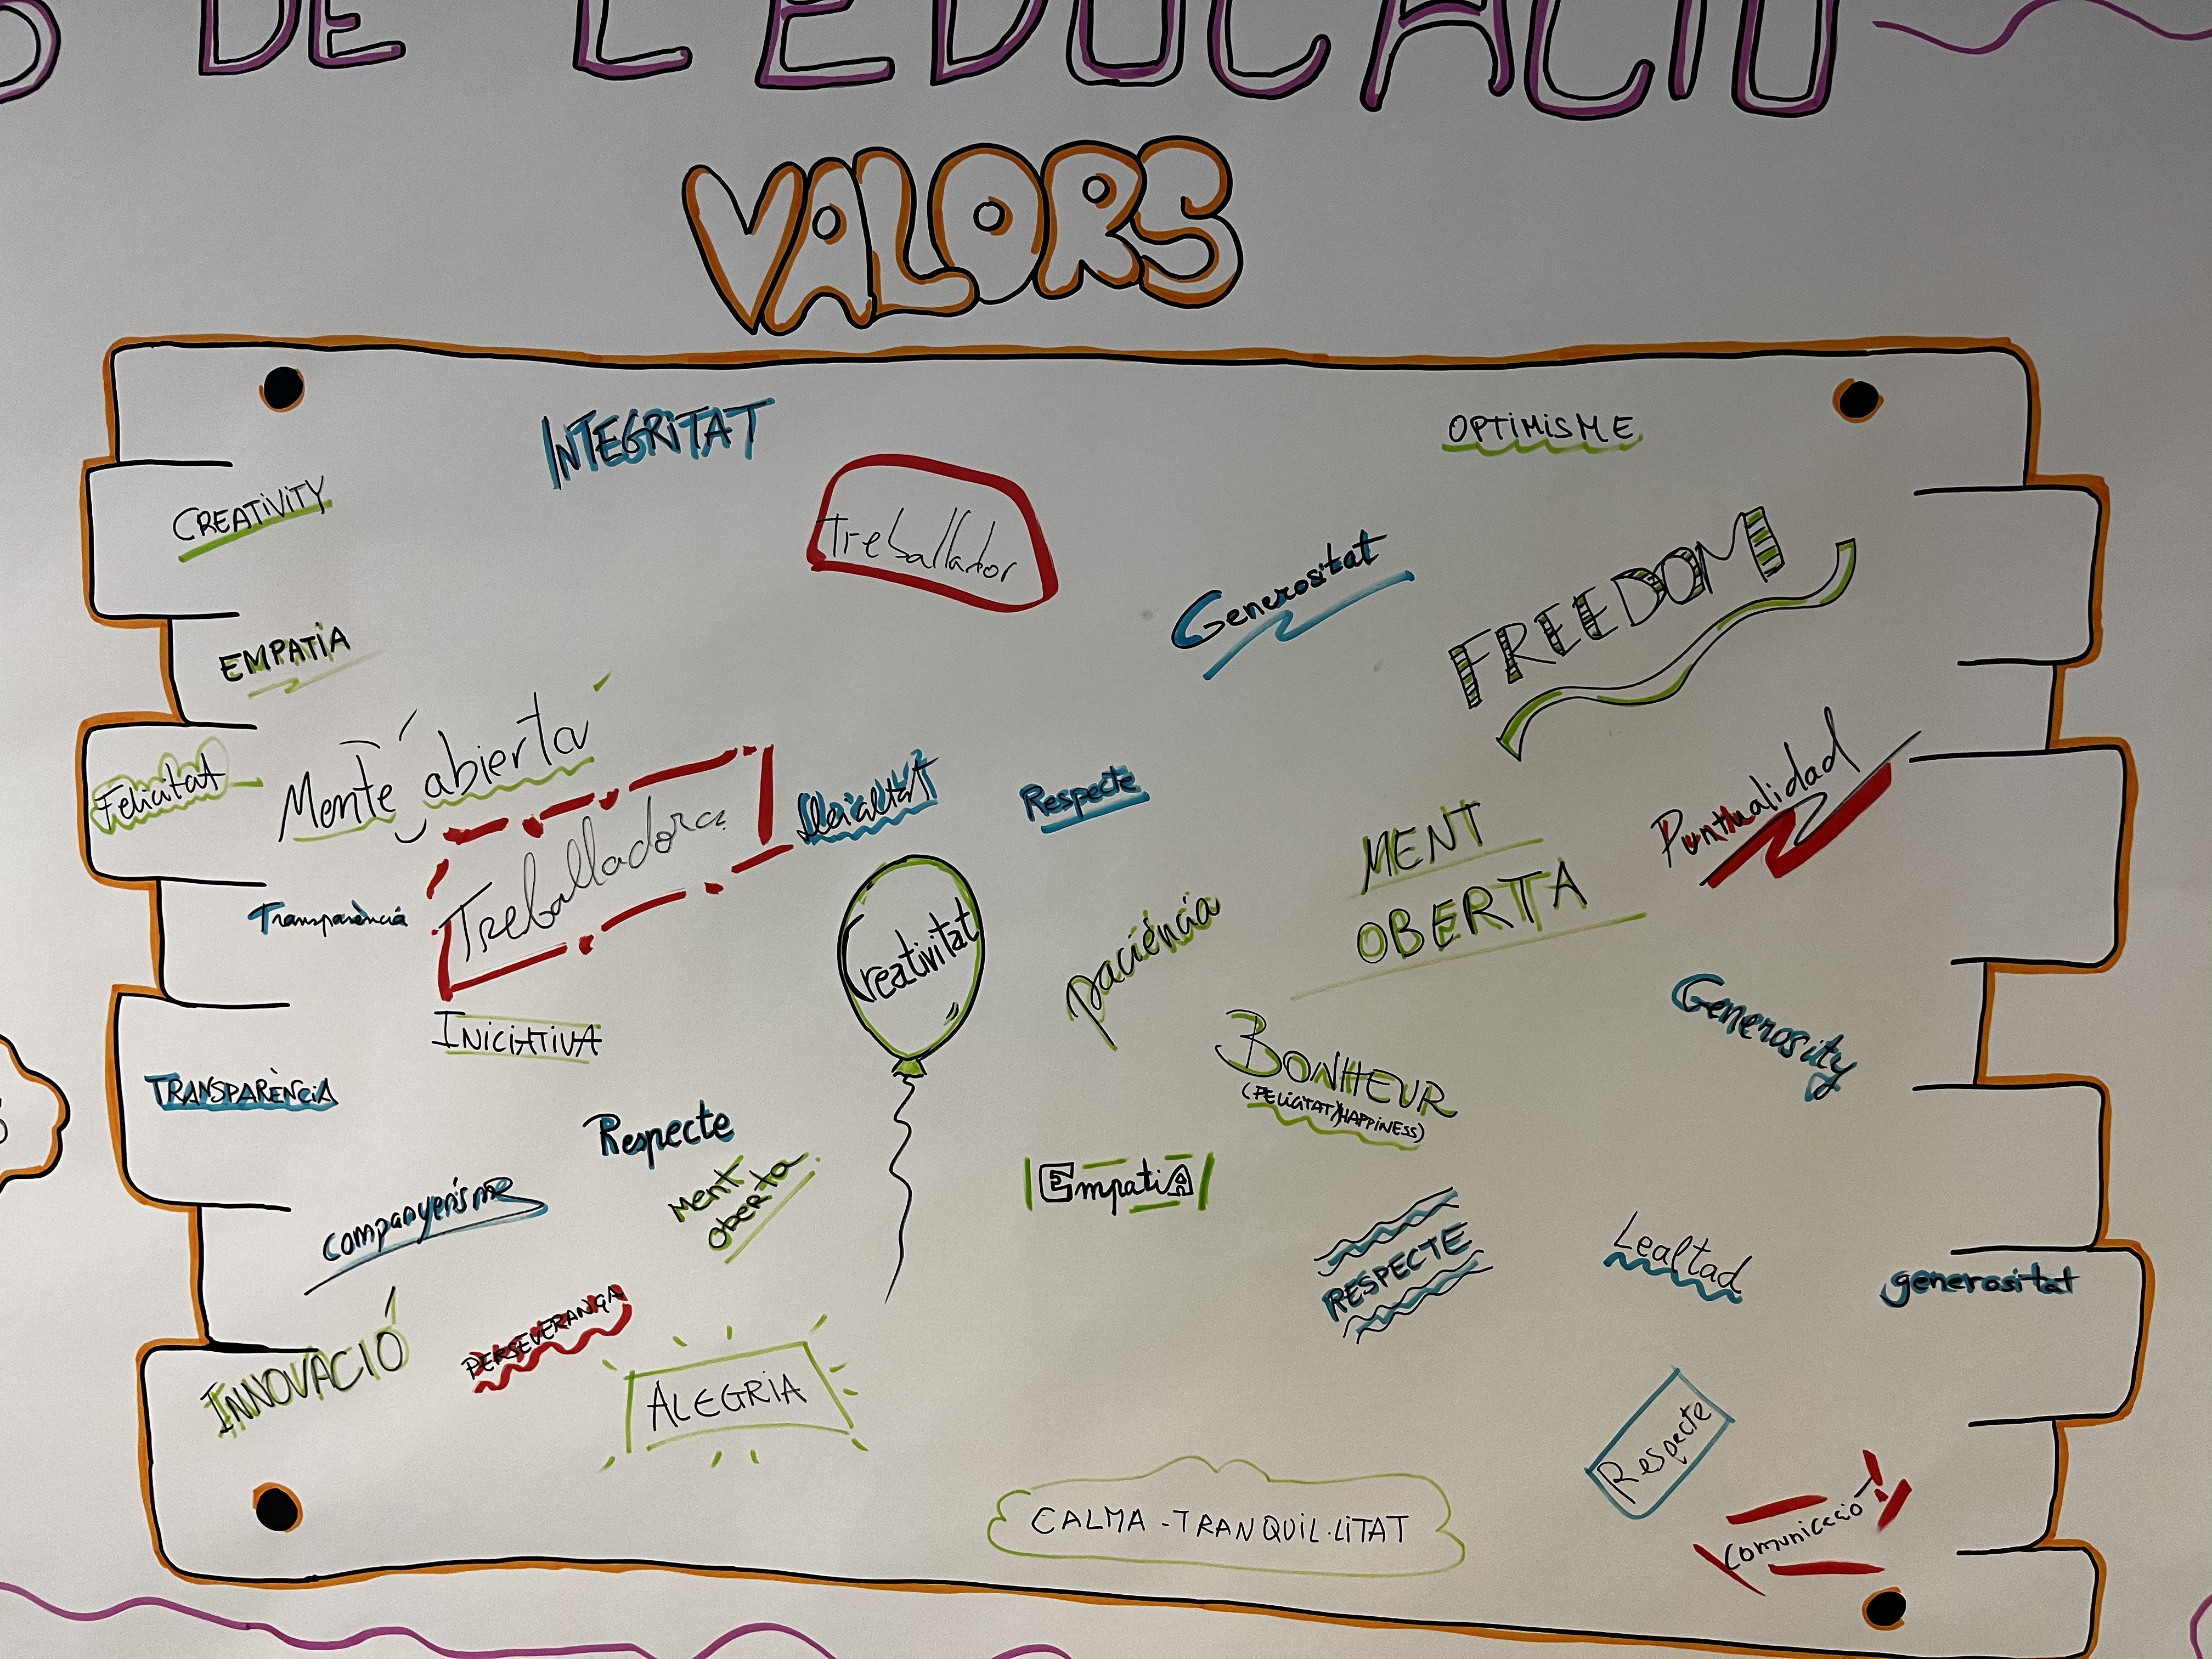 DE L'EDUCACIÓ
VALORS
INTEGRITAT
OPTIMISME
CREATIVITY
Treballador
Generositat
FREEDOM
EMPATIA
Felicitat
Mente abierta
Treballadora
Lleialtat
Respecte
Puntualidad
MENT
OBERTA
Transparència
Creativitat
paciència
INICIATIVA
Generosity
TRANSPARÈNCIA
BONHEUR
(FELICITAT)(HAPPINESS)
Respecte
Ment
oberta
EmpatiA
companyerisme
RESPECTE
Lealtad
generositat
INNOVACIÓ
PERSEVERANÇA
ALEGRIA
Respecte
CALMA - TRANQUIL·LITAT
Comunicació